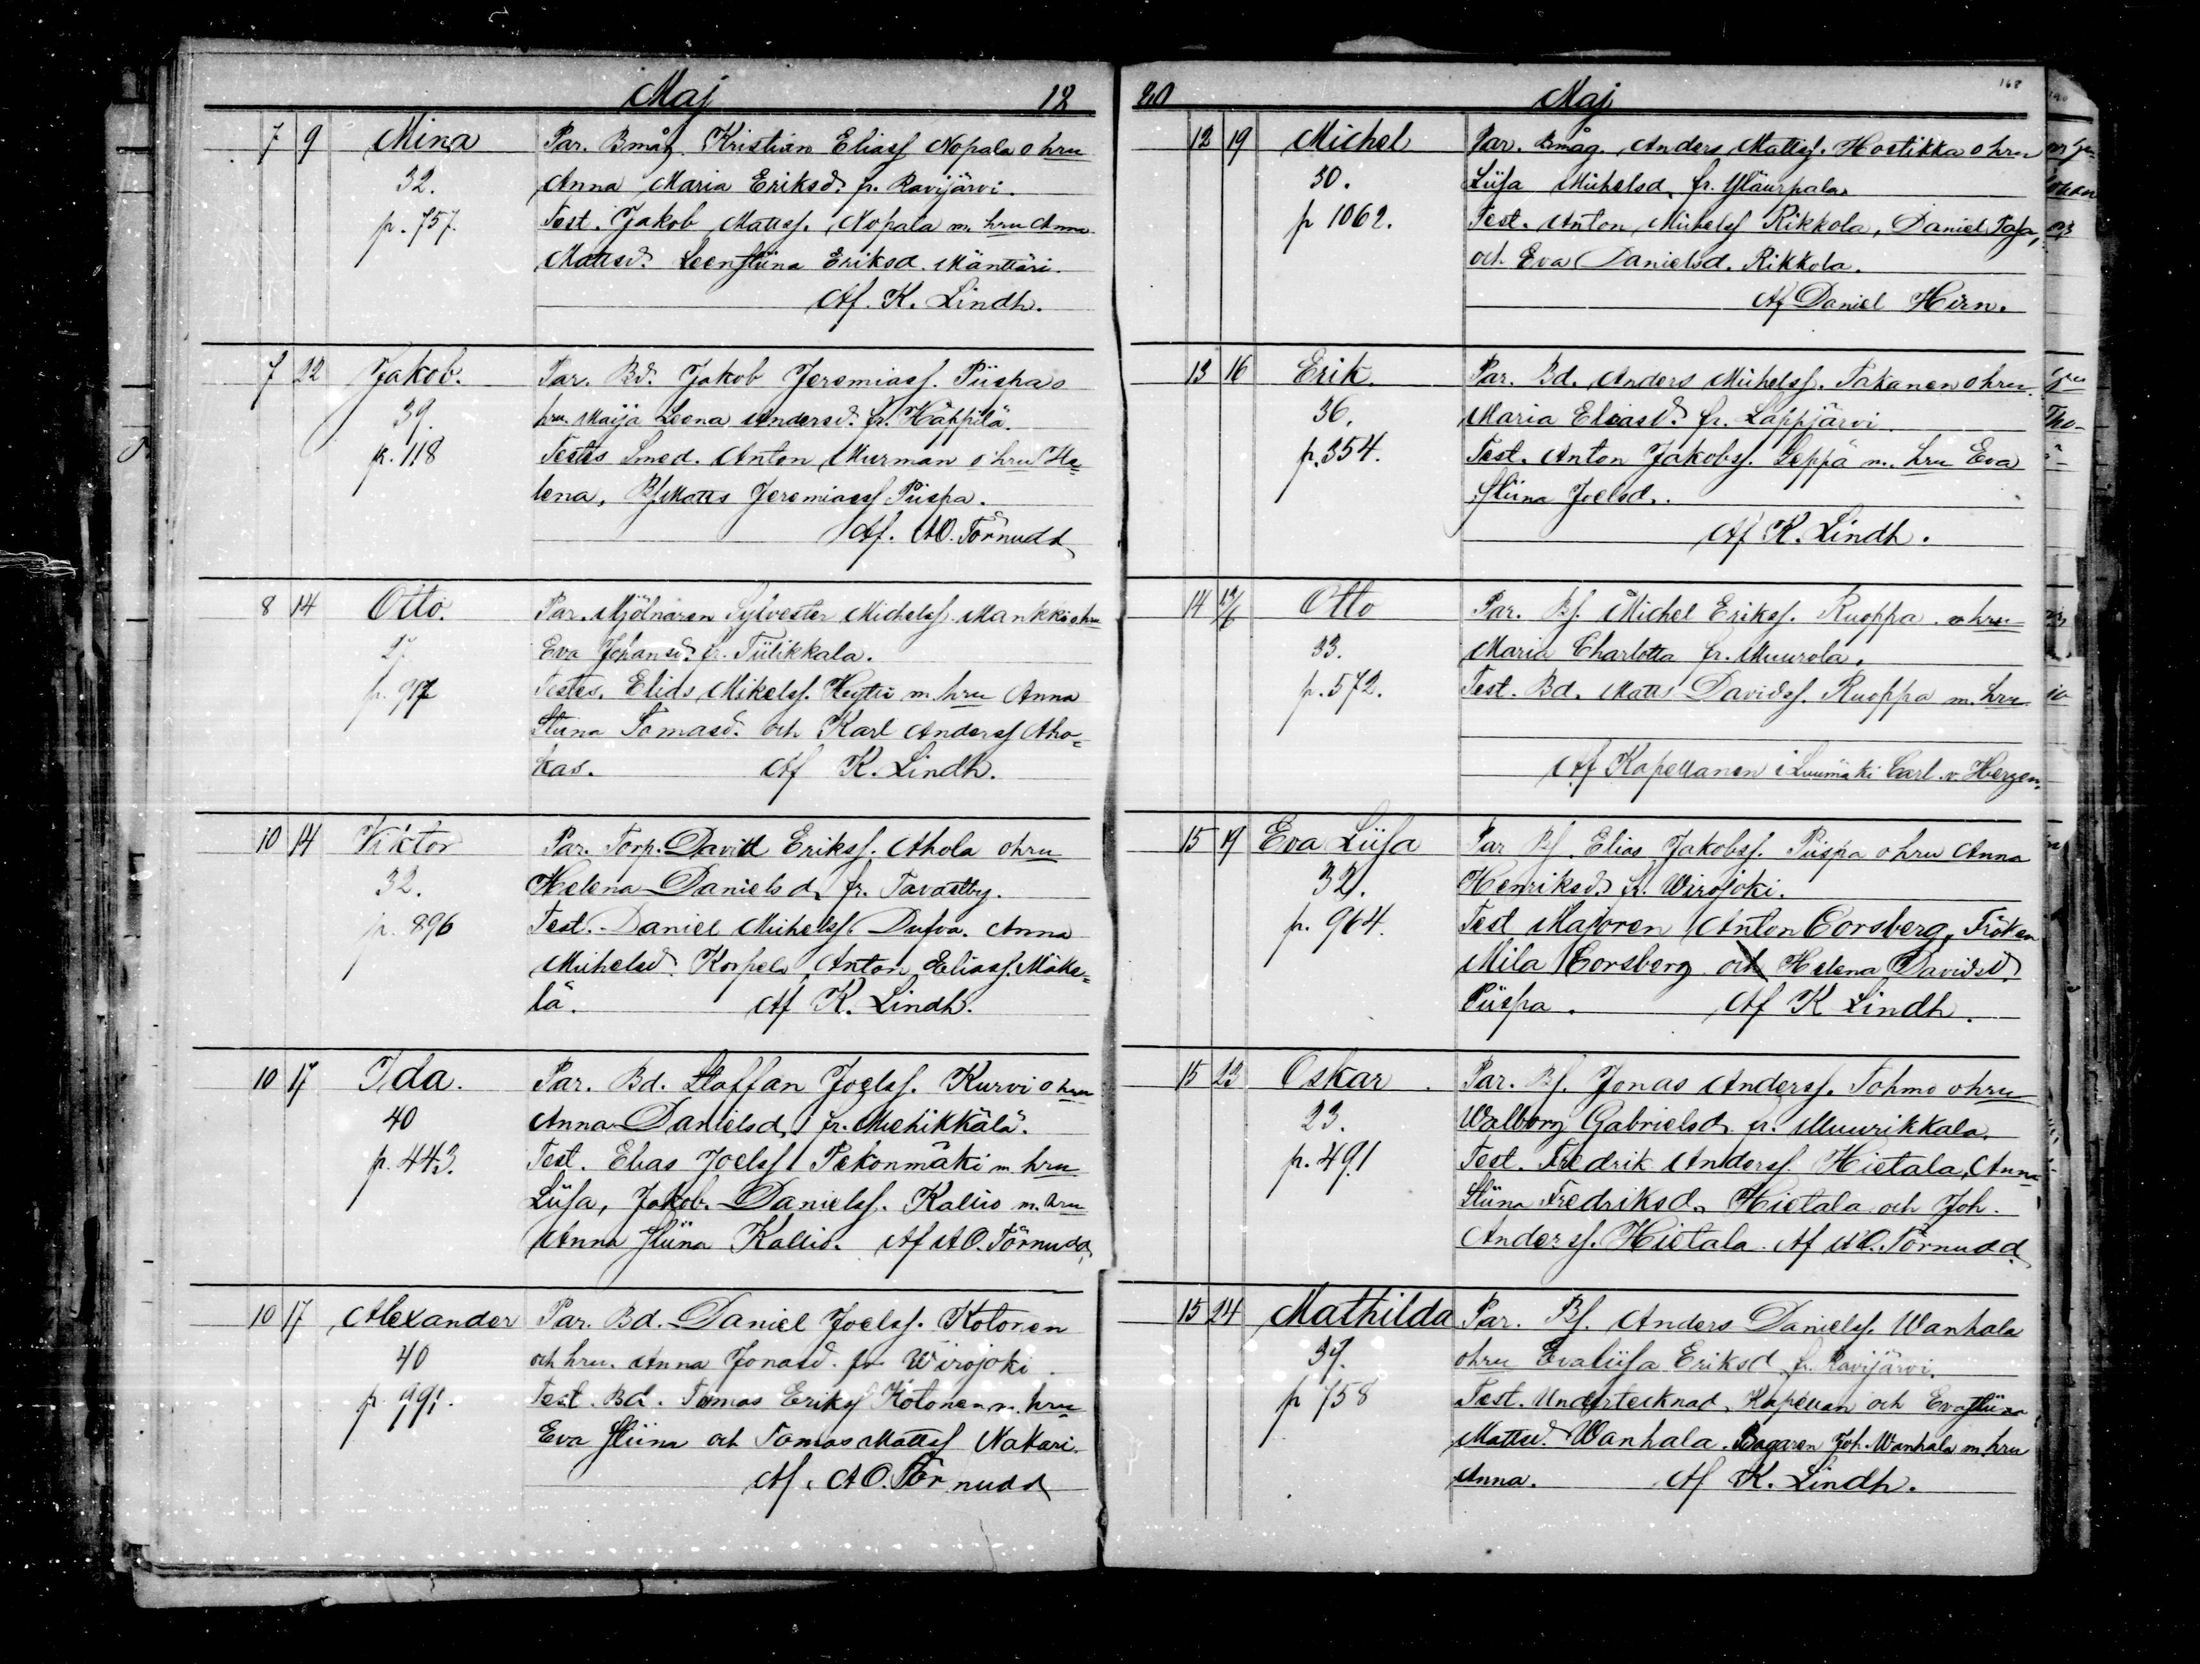 Maj 18
7 9 Mina Par. Bmåg. Kristian Eliass Nopala o hru
32. Anna Maria Eriksd. fr. Ravijärvi.
p. 757. Test. Jakob Mattss. Nopala m. hru Anna
Mattsd. Leenstiina Eriksd. Mänttäri.
Af. K. Lindh.
7 22 Jakob. Par. Bd. Jakob Jeremiass. Piispa o
39. hru Maija Leena Andersd. fr. Häppilä.
p. 118 Testes Smed. Anton Murman o hru He=
lena, Bs Matts Jeremiass Piispa.
Af. A O. Törnudd
8 14 Otto. Par. Mjölnaren Sylvester Michelss. Mankki o hru
Eva Johansd. fr. Tiilikkala.
p. 917 Testes. Elids Mikelss. m. hru Anna
Stiina Tomasd. och Karl Anderss Aho=
kas. Af K. Lindh.
10 14 Viktor Par. Torp. David Erikss. Ahola o hru
32. Helena Danielsd. fr. Tavastby.
p. 896 Test. Daniel Michelss. Dufva. Anna
Michelsd. Korpela Anton Eliass. Mäke=
lä. Af K. Lindh.
10 17 Ida. Par. Bd. Staffan Joelss. Kurvi o hru
40 Anna Danielsd. fr. Miehikkälä.
p. 443. Test. Elias Joelss Pekonmäki m hru
Liisa, Jakob. Danielss. Kallio m. hru
Anna Stiina Kallio. Af A O. Törnudd.
10 17 Alexander Par. Bd. Daniel Joelss. Kotonen
40 och hru. Anna Jonasd. fr Wirojoki.
p. 991. Test. Bd. Tomas Erikss Kotonen m. hru
Eva Stiina och Tomas Mattss Nakari.
Af. A O. Törnudd
20 Maj 168
12 19 Michel Par. Bmåg. Anders Mattss. Hostikka o hru
30. Liisa Michelsd. fr. Yläurpala.
p 1062. Test. Anton Michelss Rikkola, Daniel
och Eva Danielsd. Rikkola.
Af Daniel Hirn.
13 16 Erik. Par. Bd. Anders Michelss. Takanen o hru.
36. Maria Eliasd. fr. Lappjärvi.
p. 354. Test. Anton Jakobss. Seppä m. hru Eva
Stiina Joelsd.
Af K. Lindh.
14 Otto Par. Bs. Michel Erikss. Ruoppa o hru
33. Maria Charlotta fr. Muurola.
p. 572. Test. Bd. Matts Davidss. Ruoppa m. hru
Af Kapellanen i Luumäki Carl v. Hergen.
15 19 Eva Liisa Par Bs. Elias Jakobss. Piispa o hru Anna
32. Henriksd. fr. Wirojoki.
p. 964. Test Majoren Anton Corsberg, Fröken
Mila Corsberg och Helena Davidsd.
Piispa. Af K Lindh.
15 23 Oskar. Par. Bs. Jonas Anderss. Tohmo o hru
23. Walborg Gabrielsd. fr. Muurikkala.
p. 491 Test. Fredrik Anderss. Hietala, Anna
Stiina Fredriksd. Hietala och Joh.
Anderss. Hietala. Af A O. Törnudd.
15 24 Mathilda Par. Bs. Anders Danielss. Wanhala
37. o hru Evaliisa Eriksd. fr. Ravijärvi.
p 758 Test. Undertecknad, Kapellan och Evastiina
Mattsd. Wanhala. Bagaren Joh. Wanhala m. hru
Anna. Af K. Lindh.